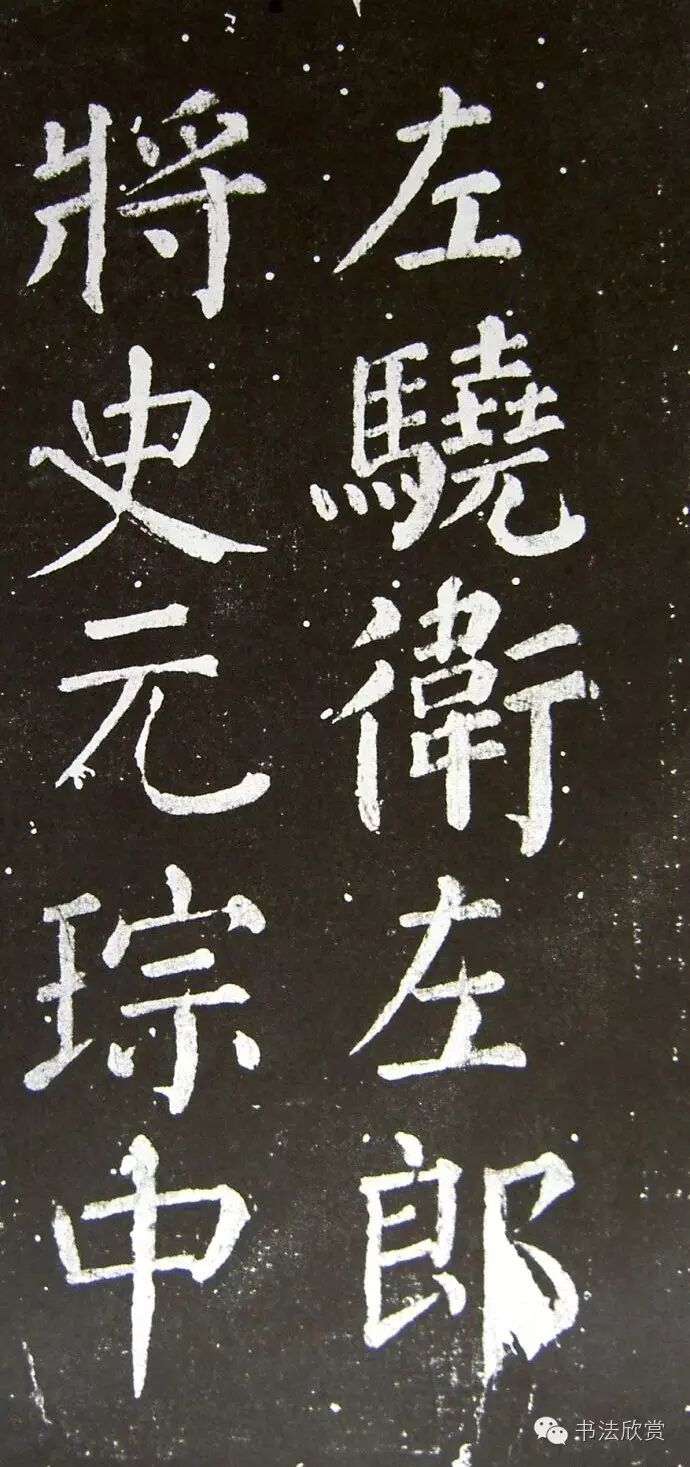 左驍衛左郎
將史元琮中
书法欣赏